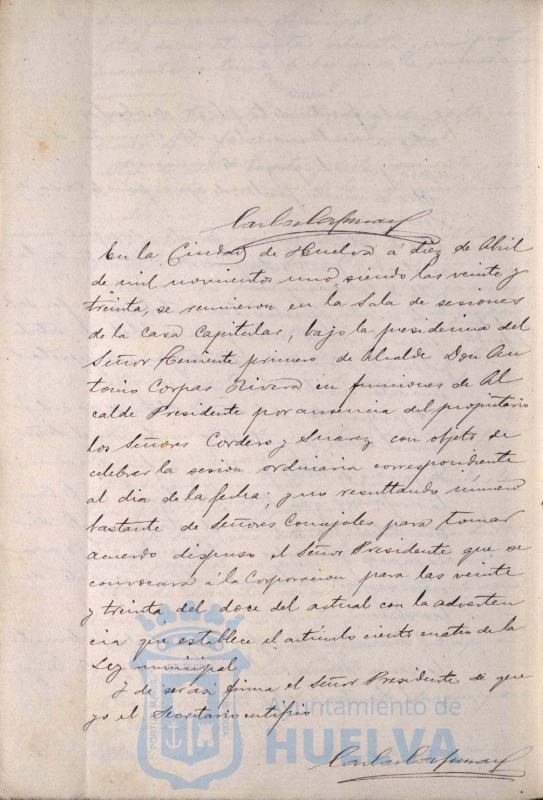 En la Ciudad de Huelva á diez de Abril
de mil novecientos uno, siendo las veinte y
treinta, se reunieron en la Sala de sesiones
de la casa Capitular, bajo la presidencia del
Señor Teniente primero de Alcalde Don An
tonio Corpas Rivera en funciones de Al
calde Presidente por ausencia del propietario
los Señores Cordero y Suárez con objeto de
celebrar la sesion ordinaria correspondiente
al dia de la fecha; y no resultando número
bastante de Señores Concejales para tomar
acuerdo dispuso el Señor Presidente que se
convocara á la Corporacion para las veinte
y treinta del doce del actual con la adverten
cia que establece el artículo ciento cuatro de la
Ley municipal
Y de ser así firma el Señor Presidente de que
yo el Secretario certifico
Ayuntamiento de
HUELVA